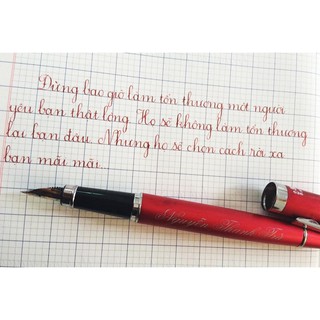 Đừng bao giờ làm tổn thương một người
yêu bạn thật lòng. Họ sẽ không làm tổn thương
lại bạn đâu. Nhưng họ sẽ chọn cách rời xa
bạn mãi mãi...
Nguyễn Thanh